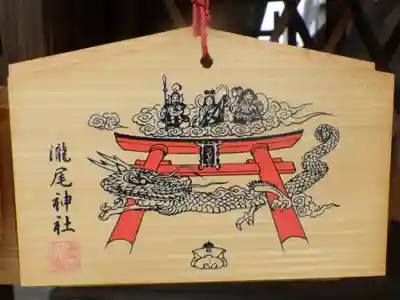 瀧尾神社